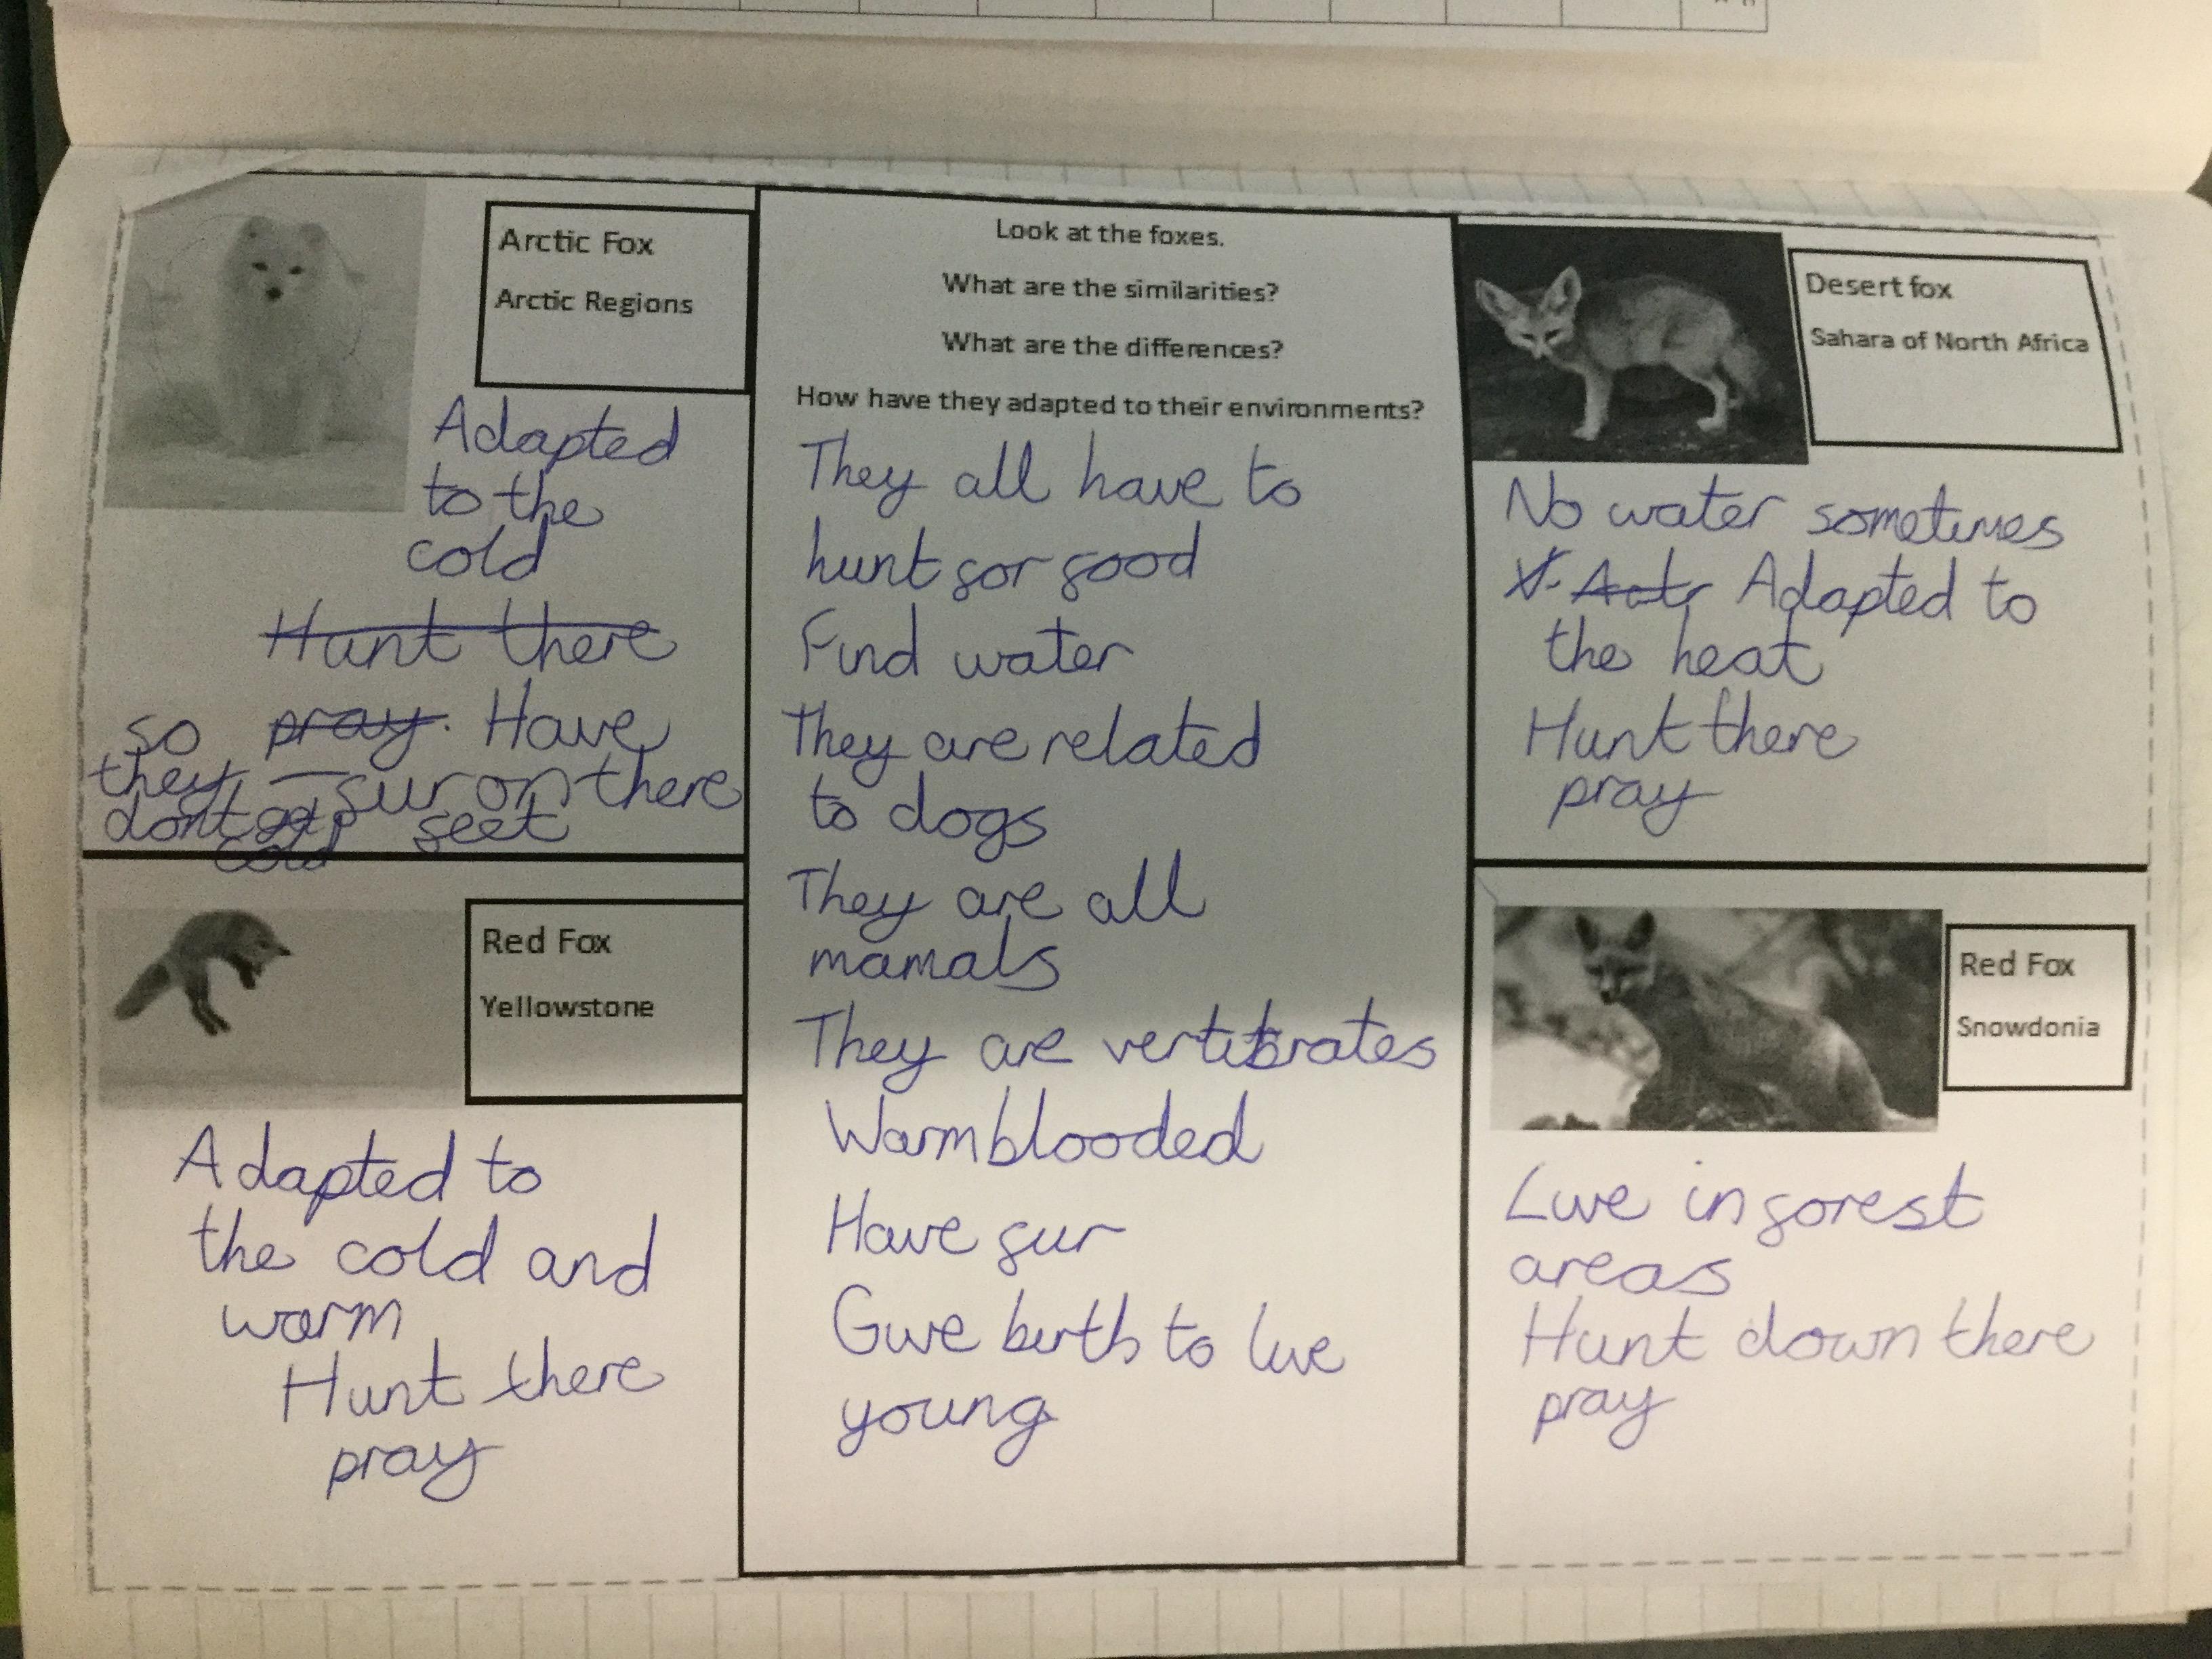 Arctic Fox
Arctic Regions
Adapted
to the
cold
Hunt there
pray. Have
fur on there
feet
so
they
dont get
cold
Look at the foxes.
What are the similarities?
What are the differences?
How have they adapted to their environments?
They all have to
hunt for food
Find water
They are related
to dogs
They are all
mamals
They are vertibrates
Warmblooded
Have fur
Give birth to live
young
Desert fox
Sahara of North Africa
No water sometimes
Adapted to
the heat
Hunt there
pray
Red Fox
Yellowstone
Adapted to
the cold and
warm
Hunt there
pray
Red Fox
Snowdonia
Live in forest
areas
Hunt down there
pray